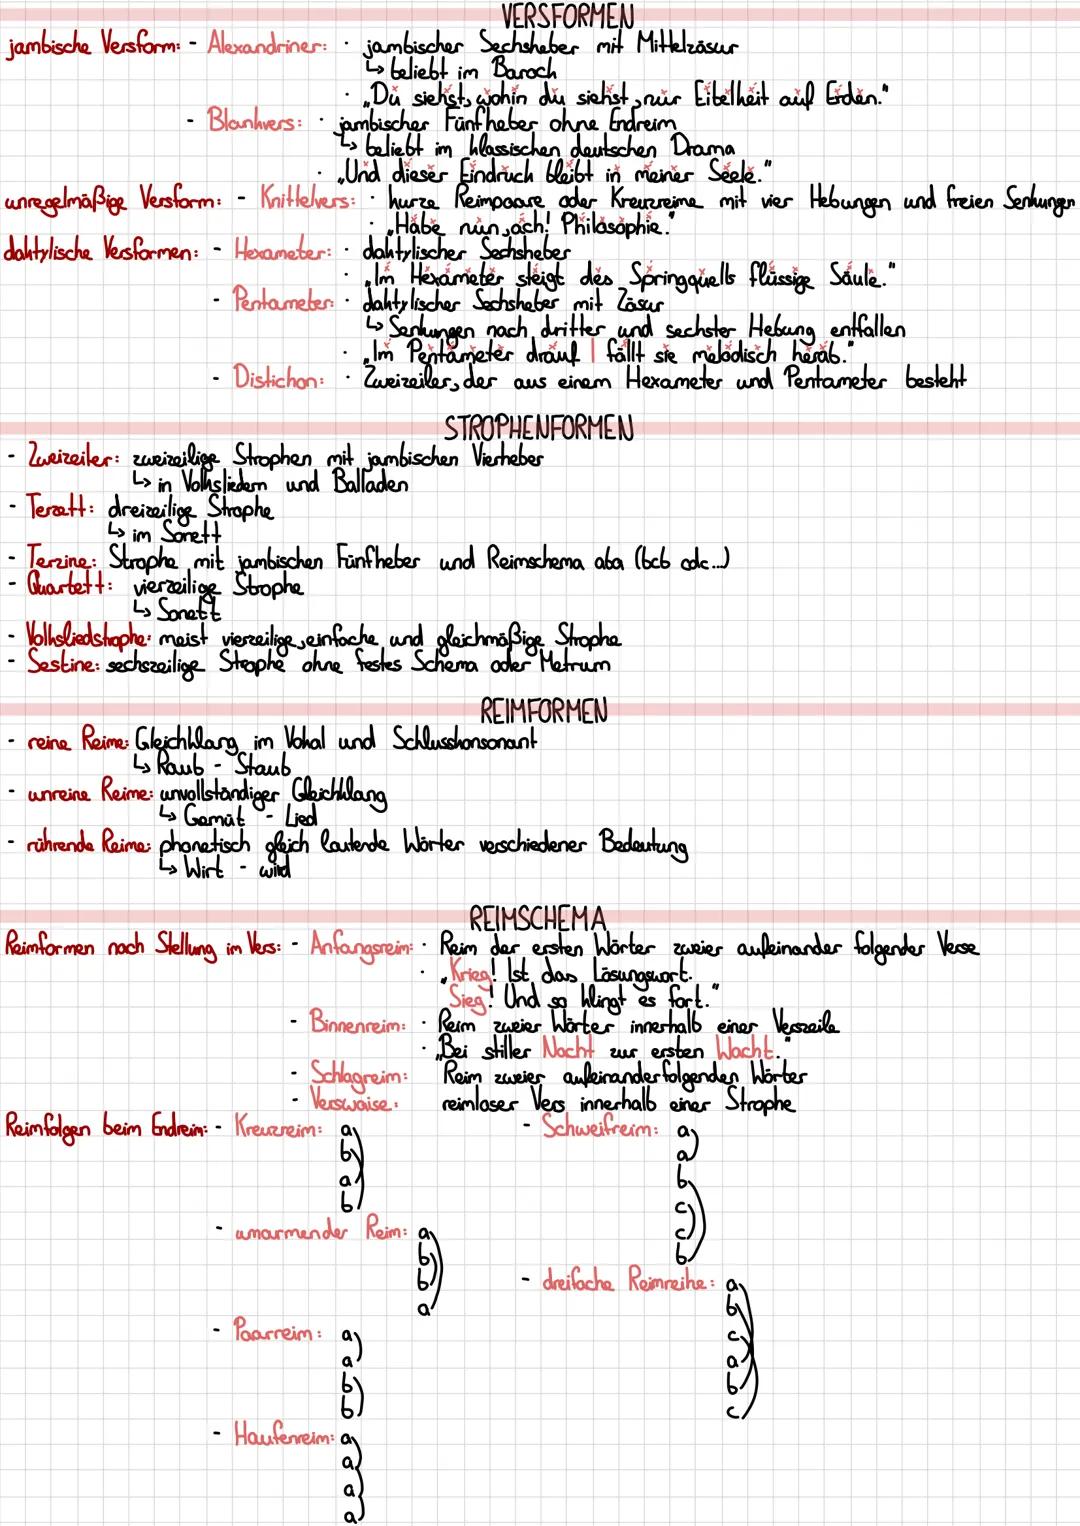 VERSFORMEN
jambische Versform: - Alexandriner: · jambischer Sechsheber mit Mittelzäsur
↳ beliebt im Barock
· „Du siehst, wohin du siehst, nur Eitelheit auf Erden."
- Blankvers: · jambischer Fünfheber ohne Endreim
↳ beliebt im klassischen deutschen Drama
· „Und dieser Eindruck bleibt in meiner Seele."
unregelmäßige Versform: - Knittelvers: · kurze Reimpaare oder Kreuzreime mit vier Hebungen und freien Senkungen
· „Habe nun, ach! Philosophie."
daktylische Versformen: - Hexameter: · daktylischer Sechsheber
· „Im Hexameter steigt des Springquells flüssige Säule."
- Pentameter: · daktylischer Sechsheber mit Zäsur
↳ Senkungen nach dritter und sechster Hebung entfallen
· „Im Pentameter drauf | fällt sie melodisch herab."
- Distichon: · Zweizeiler, der aus einem Hexameter und Pentameter besteht
STROPHENFORMEN
- Zweizeiler: zweizeilige Strophen mit jambischen Vierheber
↳ in Volksliedern und Balladen
- Terzett: dreizeilige Strophe
↳ im Sonett
- Terzine: Strophe mit jambischen Fünfheber und Reimschema aba (bcb cdc...)
- Quartett: vierzeilige Strophe
↳ Sonett
- Volksliedstrophe: meist vierzeilige, einfache und gleichmäßige Strophe
- Sestine: sechszeilige Strophe ohne festes Schema oder Metrum
REIMFORMEN
- reine Reime: Gleichklang im Vokal und Schlusskonsonant
↳ Raub - Staub
- unreine Reime: unvollständiger Gleichklang
↳ Gemüt - Lied
- rührende Reime: phonetisch gleich lautende Wörter verschiedener Bedeutung
↳ Wirt - wird
REIMSCHEMA
Reimformen nach Stellung im Vers: - Anfangsreim: · Reim der ersten Wörter zweier aufeinander folgender Verse
· „Krieg! Ist das Lösungswort.
Sieg! Und so klingt es fort."
- Binnenreim: · Reim zweier Wörter innerhalb einer Verszeile
· „Bei stiller Nacht zur ersten Wacht."
- Schlagreim: Reim zweier aufeinanderfolgenden Wörter
- Verswaise: reimloser Vers innerhalb einer Strophe
Reimfolgen beim Endreim: - Kreuzreim:
a
b
a
b
- umarmender Reim:
a
b
b
a
- Paarreim:
a
a
b
b
- Haufenreim:
a
a
a
a
- Schweifreim:
a
a
b
c
c
b
- dreifache Reimreihe:
a
b
c
a
b
c